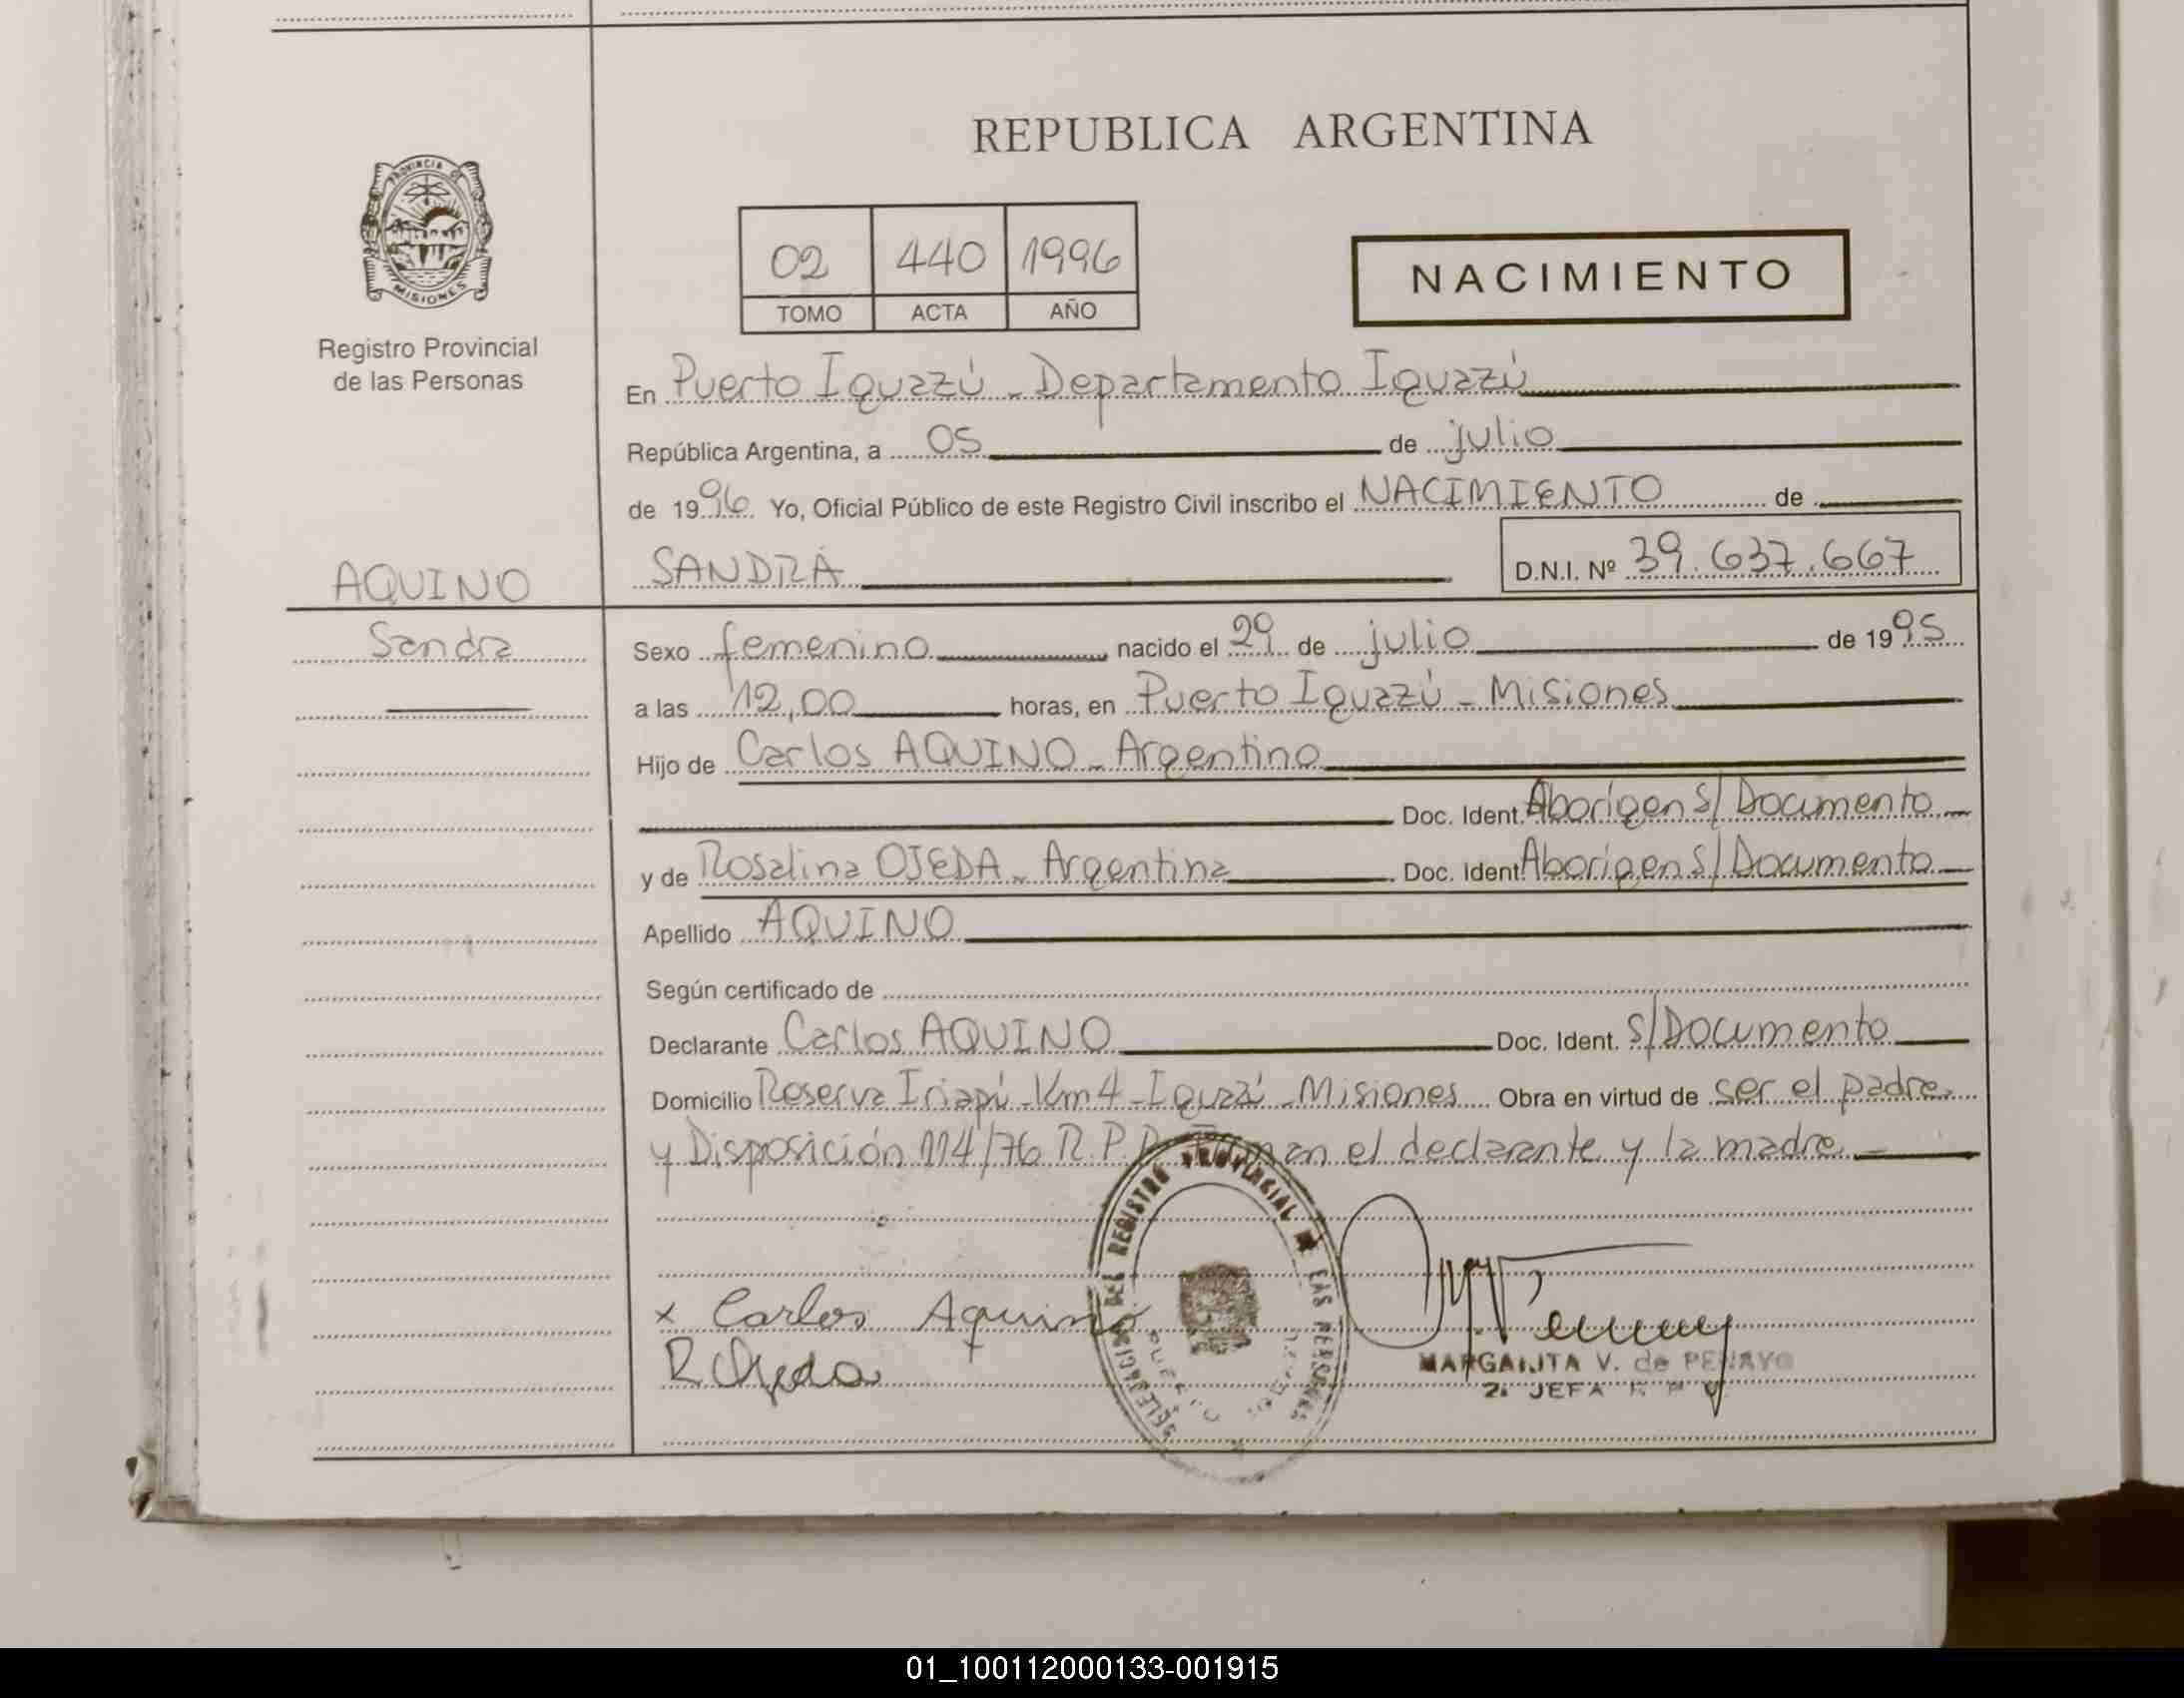 REPUBLICA ARGENTINA
PROVINCIA DE
MISIONES
Registro Provincial
de las Personas
02 440 1996
TOMO ACTA AÑO
NACIMIENTO
En Puerto Iguazú - Departamento Iguazú
República Argentina, a 05 de julio
de 1996 Yo, Oficial Público de este Registro Civil inscribo el NACIMIENTO de
AQUINO
Sandra
SANDRA D.N.I. Nº 39.637.667
Sexo femenino nacido el 29 de julio de 1995
a las 12,00 horas, en Puerto Iguazú - Misiones
Hijo de Carlos AQUINO - Argentino
Doc. Ident. Aborigen S/Documento
y de Rosalina OJEDA - Argentina Doc. Ident Aborigen S/Documento
Apellido AQUINO
Según certificado de
Declarante Carlos AQUINO Doc. Ident. S/Documento
Domicilio Reserva Iriapú - Km 4 - Iguazú - Misiones Obra en virtud de ser el padre
y Disposición 114/76 R.P.P. Firman el declarante y la madre
x Carlos Aquino
R Ojeda
REGISTRO PROVINCIAL DE LAS PERSONAS
MARGARITA V. de PENAYO
2ª JEFA
01_100112000133-001915